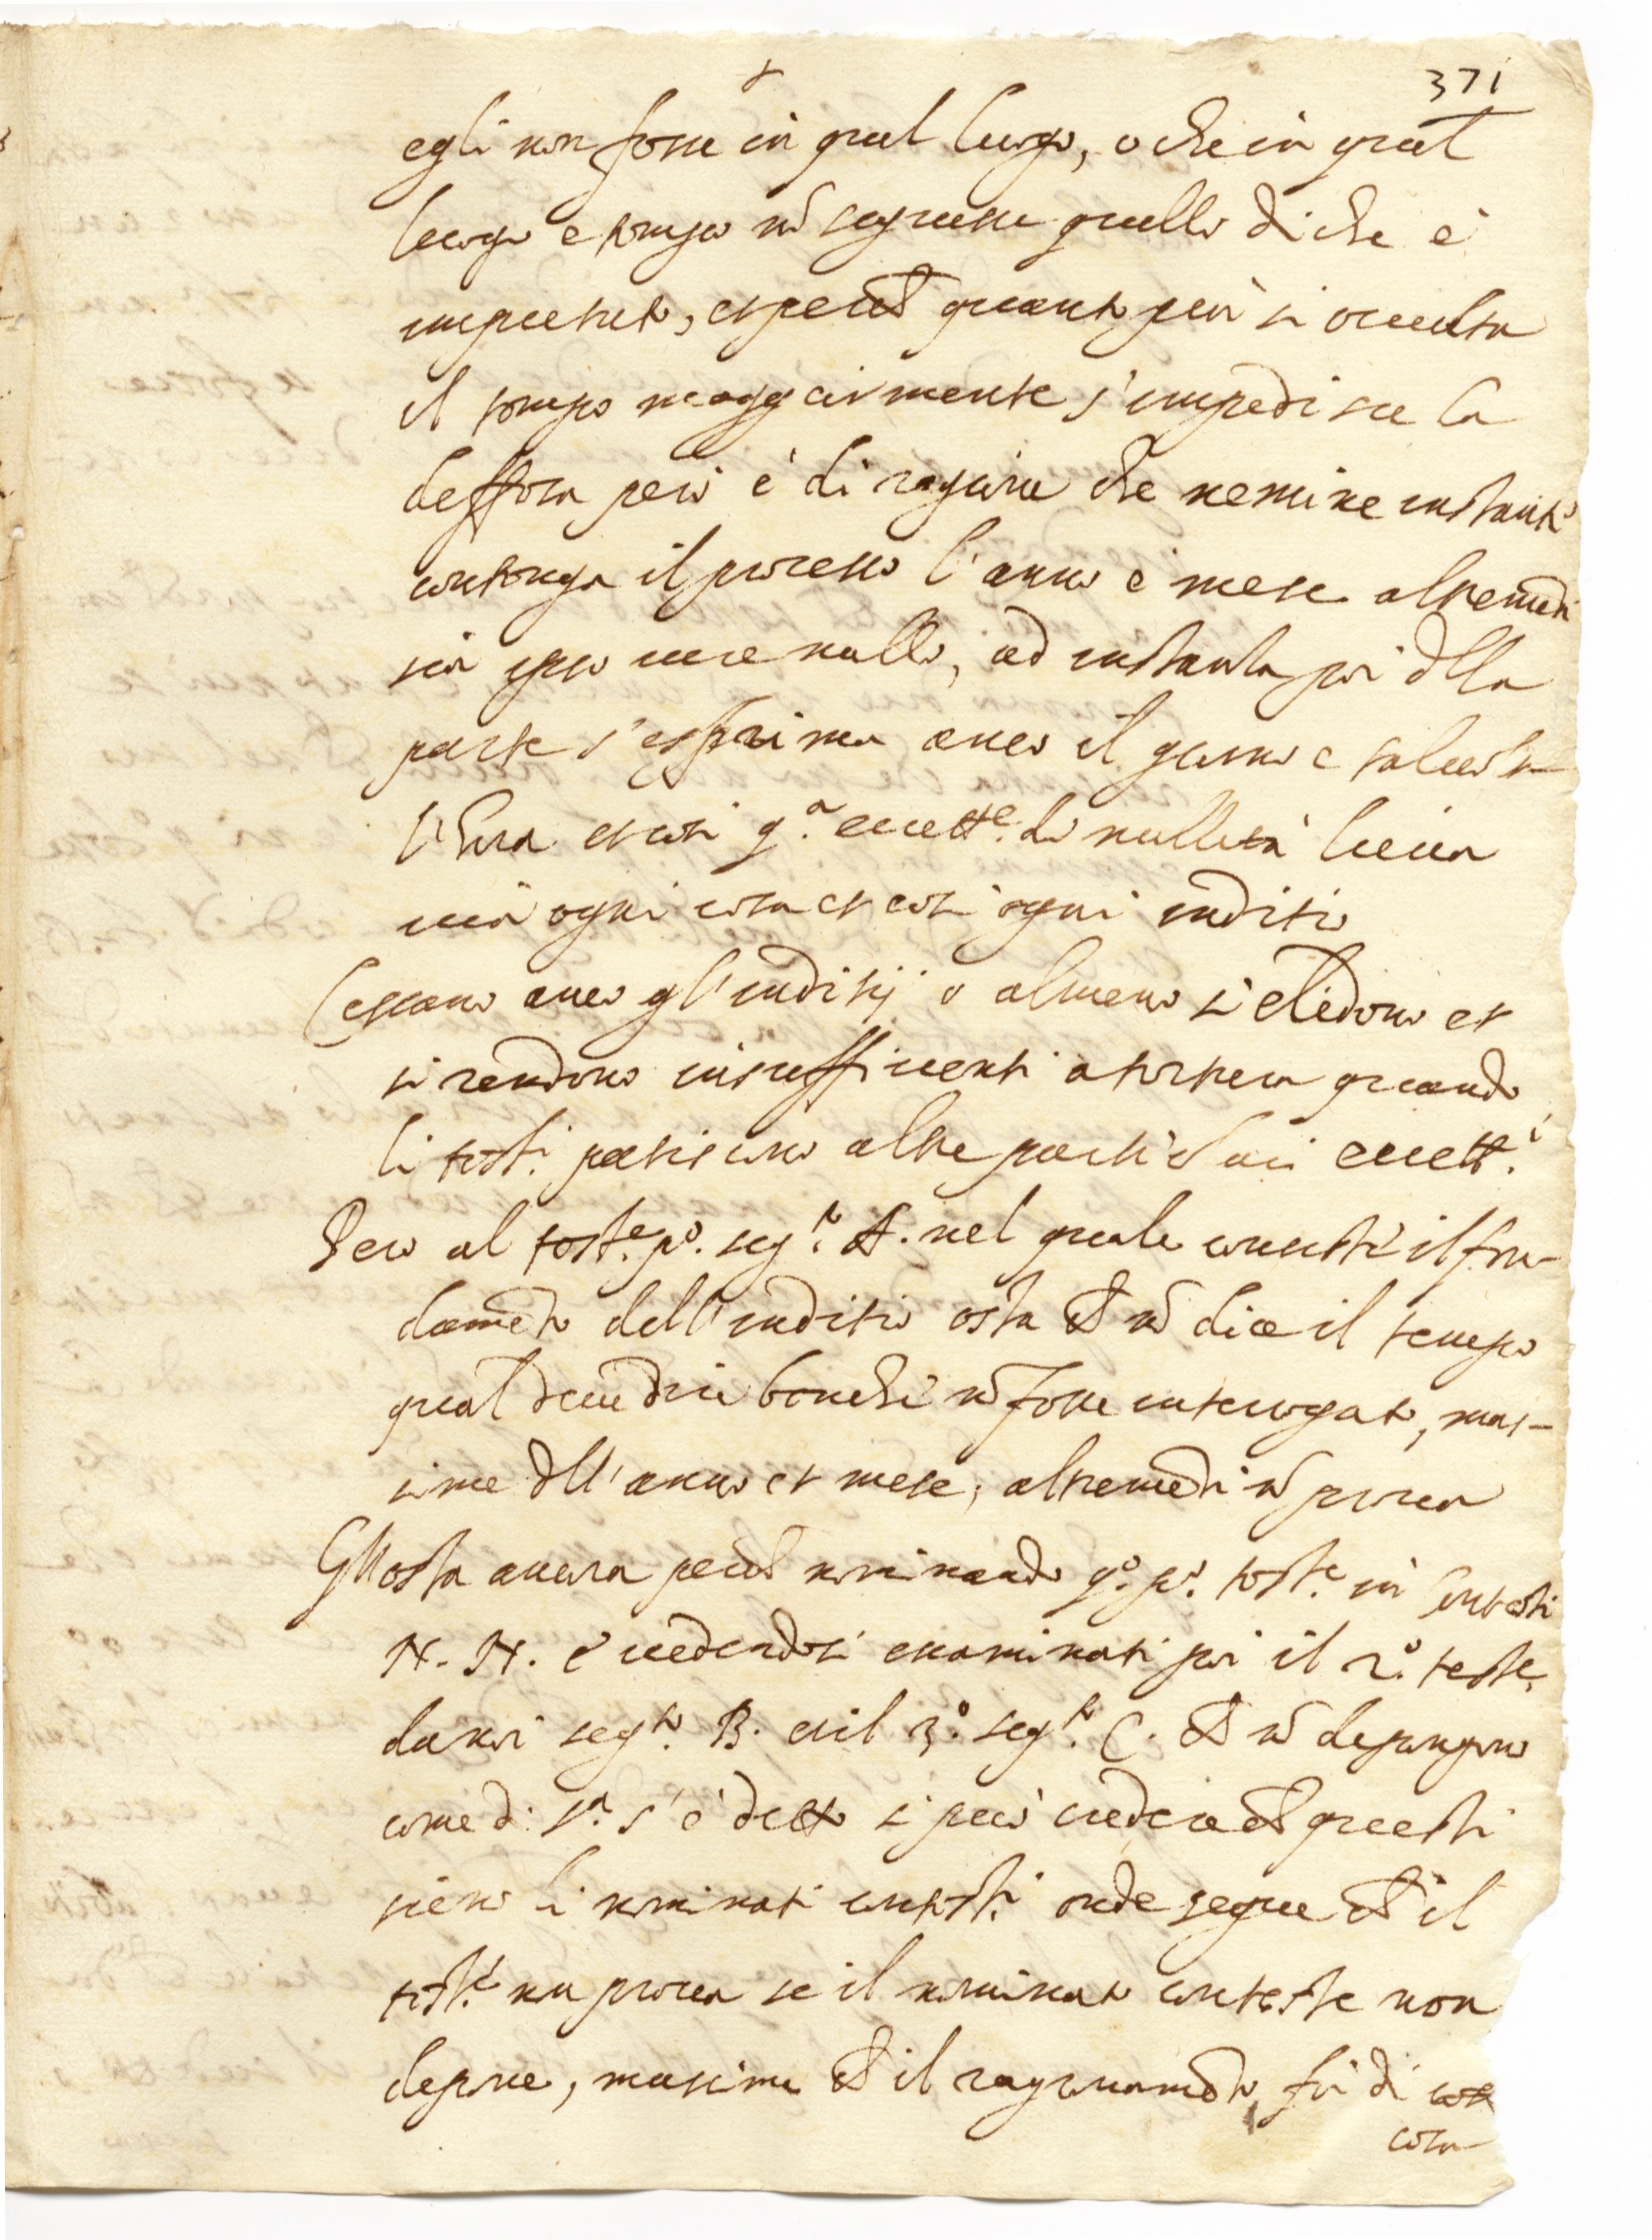 371
egli non fosse in qual luogo, o che in qual
luogo e tempo nō seguesse quello di che è
imputato, et perchè quanto più si occulta
il tempo maggiormente s'impedisce la
deffesa però è di ragione che nemine instante
contenga il processo l'anno e mese altremēti
sia ipso iure nullo, ad instantia poi dlla
parte s'esprima anco il giorno e talvolta
l'hora et così q.a eccett.e di nullità lieva
via ogni cosa et così ogni inditio
Cessano anco gl'inditij o almeno si elidono et
si rendono insufficienti a tortura quando
li test.i patiscono altre particolari eccett.i
Però al test.e p.o seg.to A. nel quale consiste il fon-
damēto dell'inditio osta chè nō dice il tempo
qual deve dire benchè nō fosse interrogato, mas-
sime dll'anno et mese, altremēti nō prova
Gl'osta ancora perchè nominando q.o p.o test.e in contesti
N. N. e vedendosi examinati poi il 2.o teste,
danoi seg.to B. et il 3.o seg.to C. chè nō depongono
come di s.a s'è detto si può credere chè questi
sieno li nominati contesti onde segue chè il
test.e non prova se il nominato conteste non
depone, massime chè il ragionamēto fù di cose
cosa